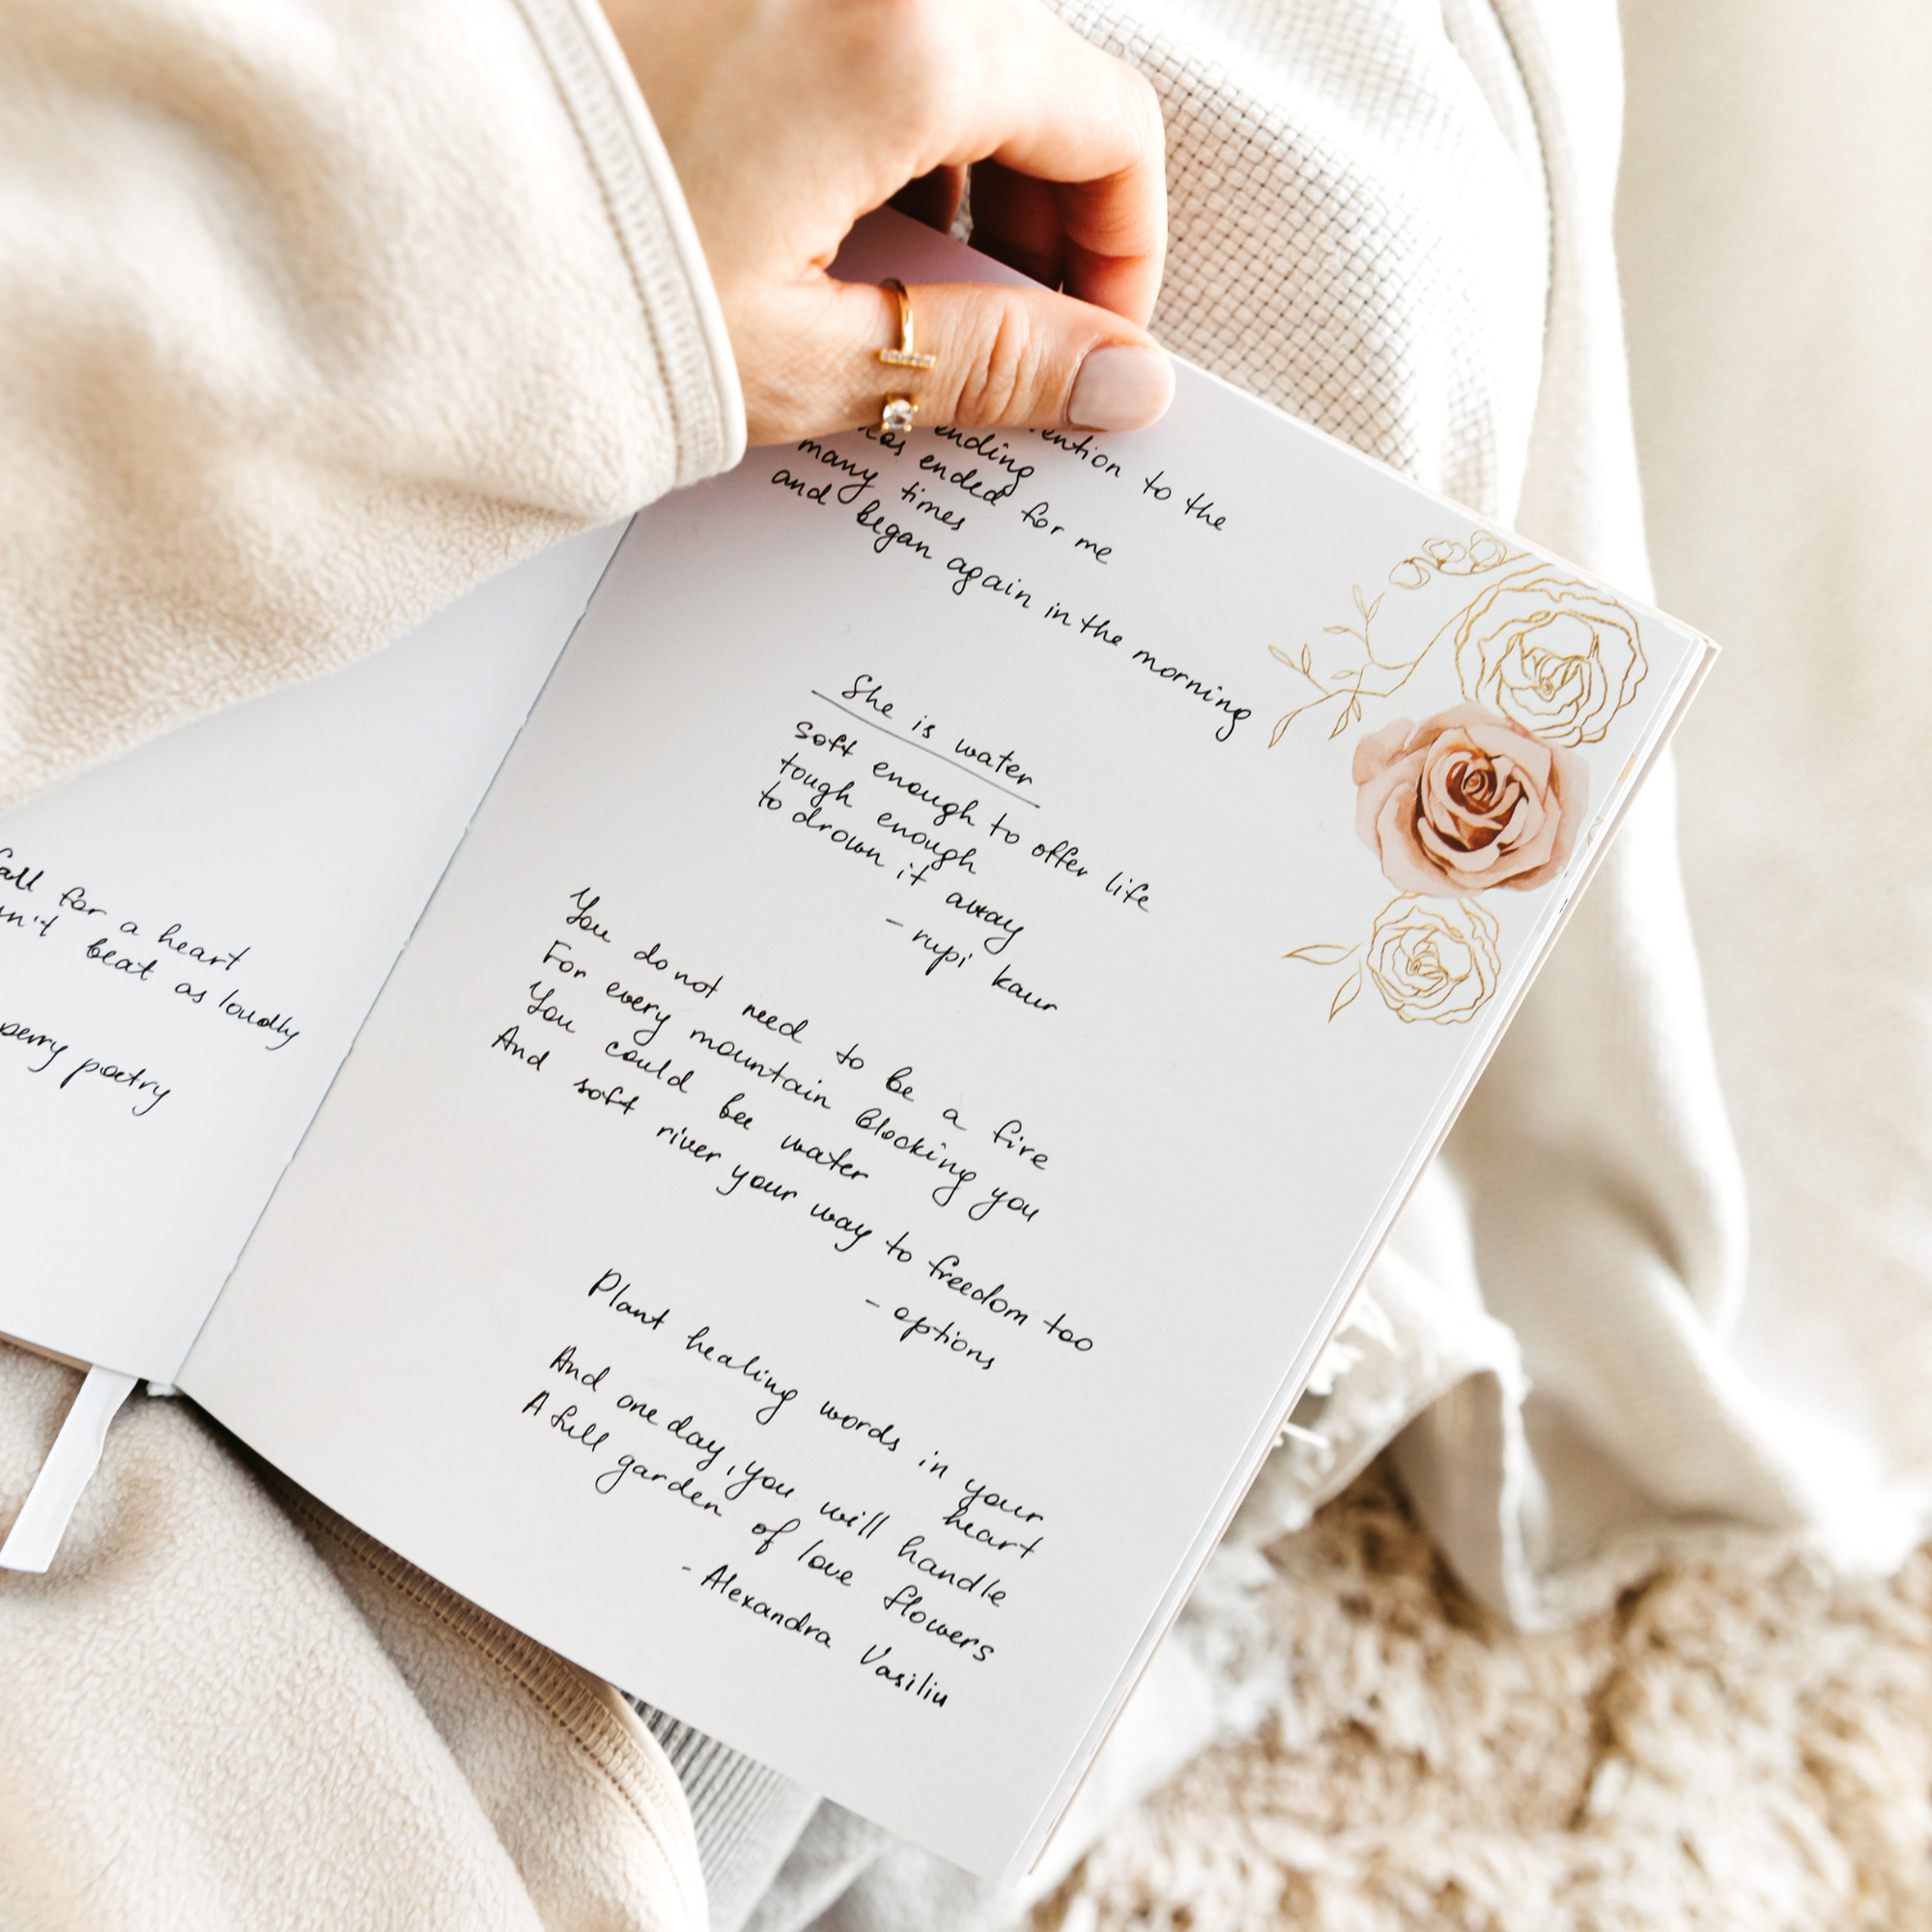 for a heart
beat as loudly
perry poetry
to the
ending
has ended for me
many times
and began again in the morning
She is water
soft enough to offer life
tough enough
to drown it away
- rupi kaur
You do not need to be a fire
For every mountain blocking you
You could bee water
And soft river your way to freedom too
- options
Plant healing words in your
heart
And one day, you will handle
A full garden of love flowers
- Alexandra Vasiliu